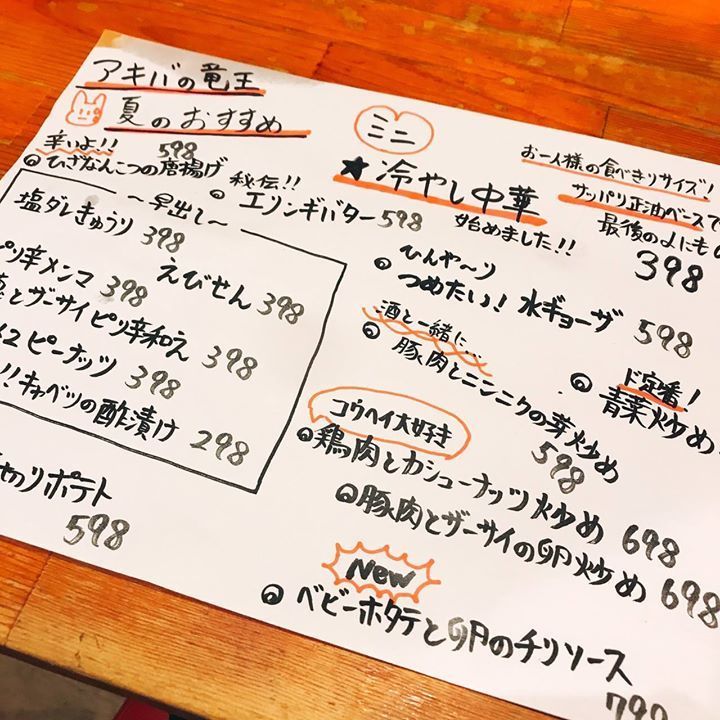 アキバの竜王
夏のおすすめ
辛いよ!! 598
ひざなんこつの唐揚げ
秘伝!!
エリンギバター 598
〜早出し〜
塩ダレきゅうり 398
えびせん 398
ピリ辛メンマ 398
とザーサイピリ辛和え 398
ピーナッツ 398
!!キャベツの酢漬け 298
ポテト
598
ミニ
★冷やし中華
始めました!!
お一人様の食べきりサイズ!
サッパリ正油ベースで
最後の〆にも
398
ひんや〜り
つめたい! 水ギョーザ 598
酒と一緒に…
豚肉とニンニクの芽炒め
598
ド定番!
青菜炒め
コウヘイ大好き
鶏肉とカシューナッツ炒め 698
豚肉とザーサイの卵炒め 698
New
ベビーホタテと卵のチリソース